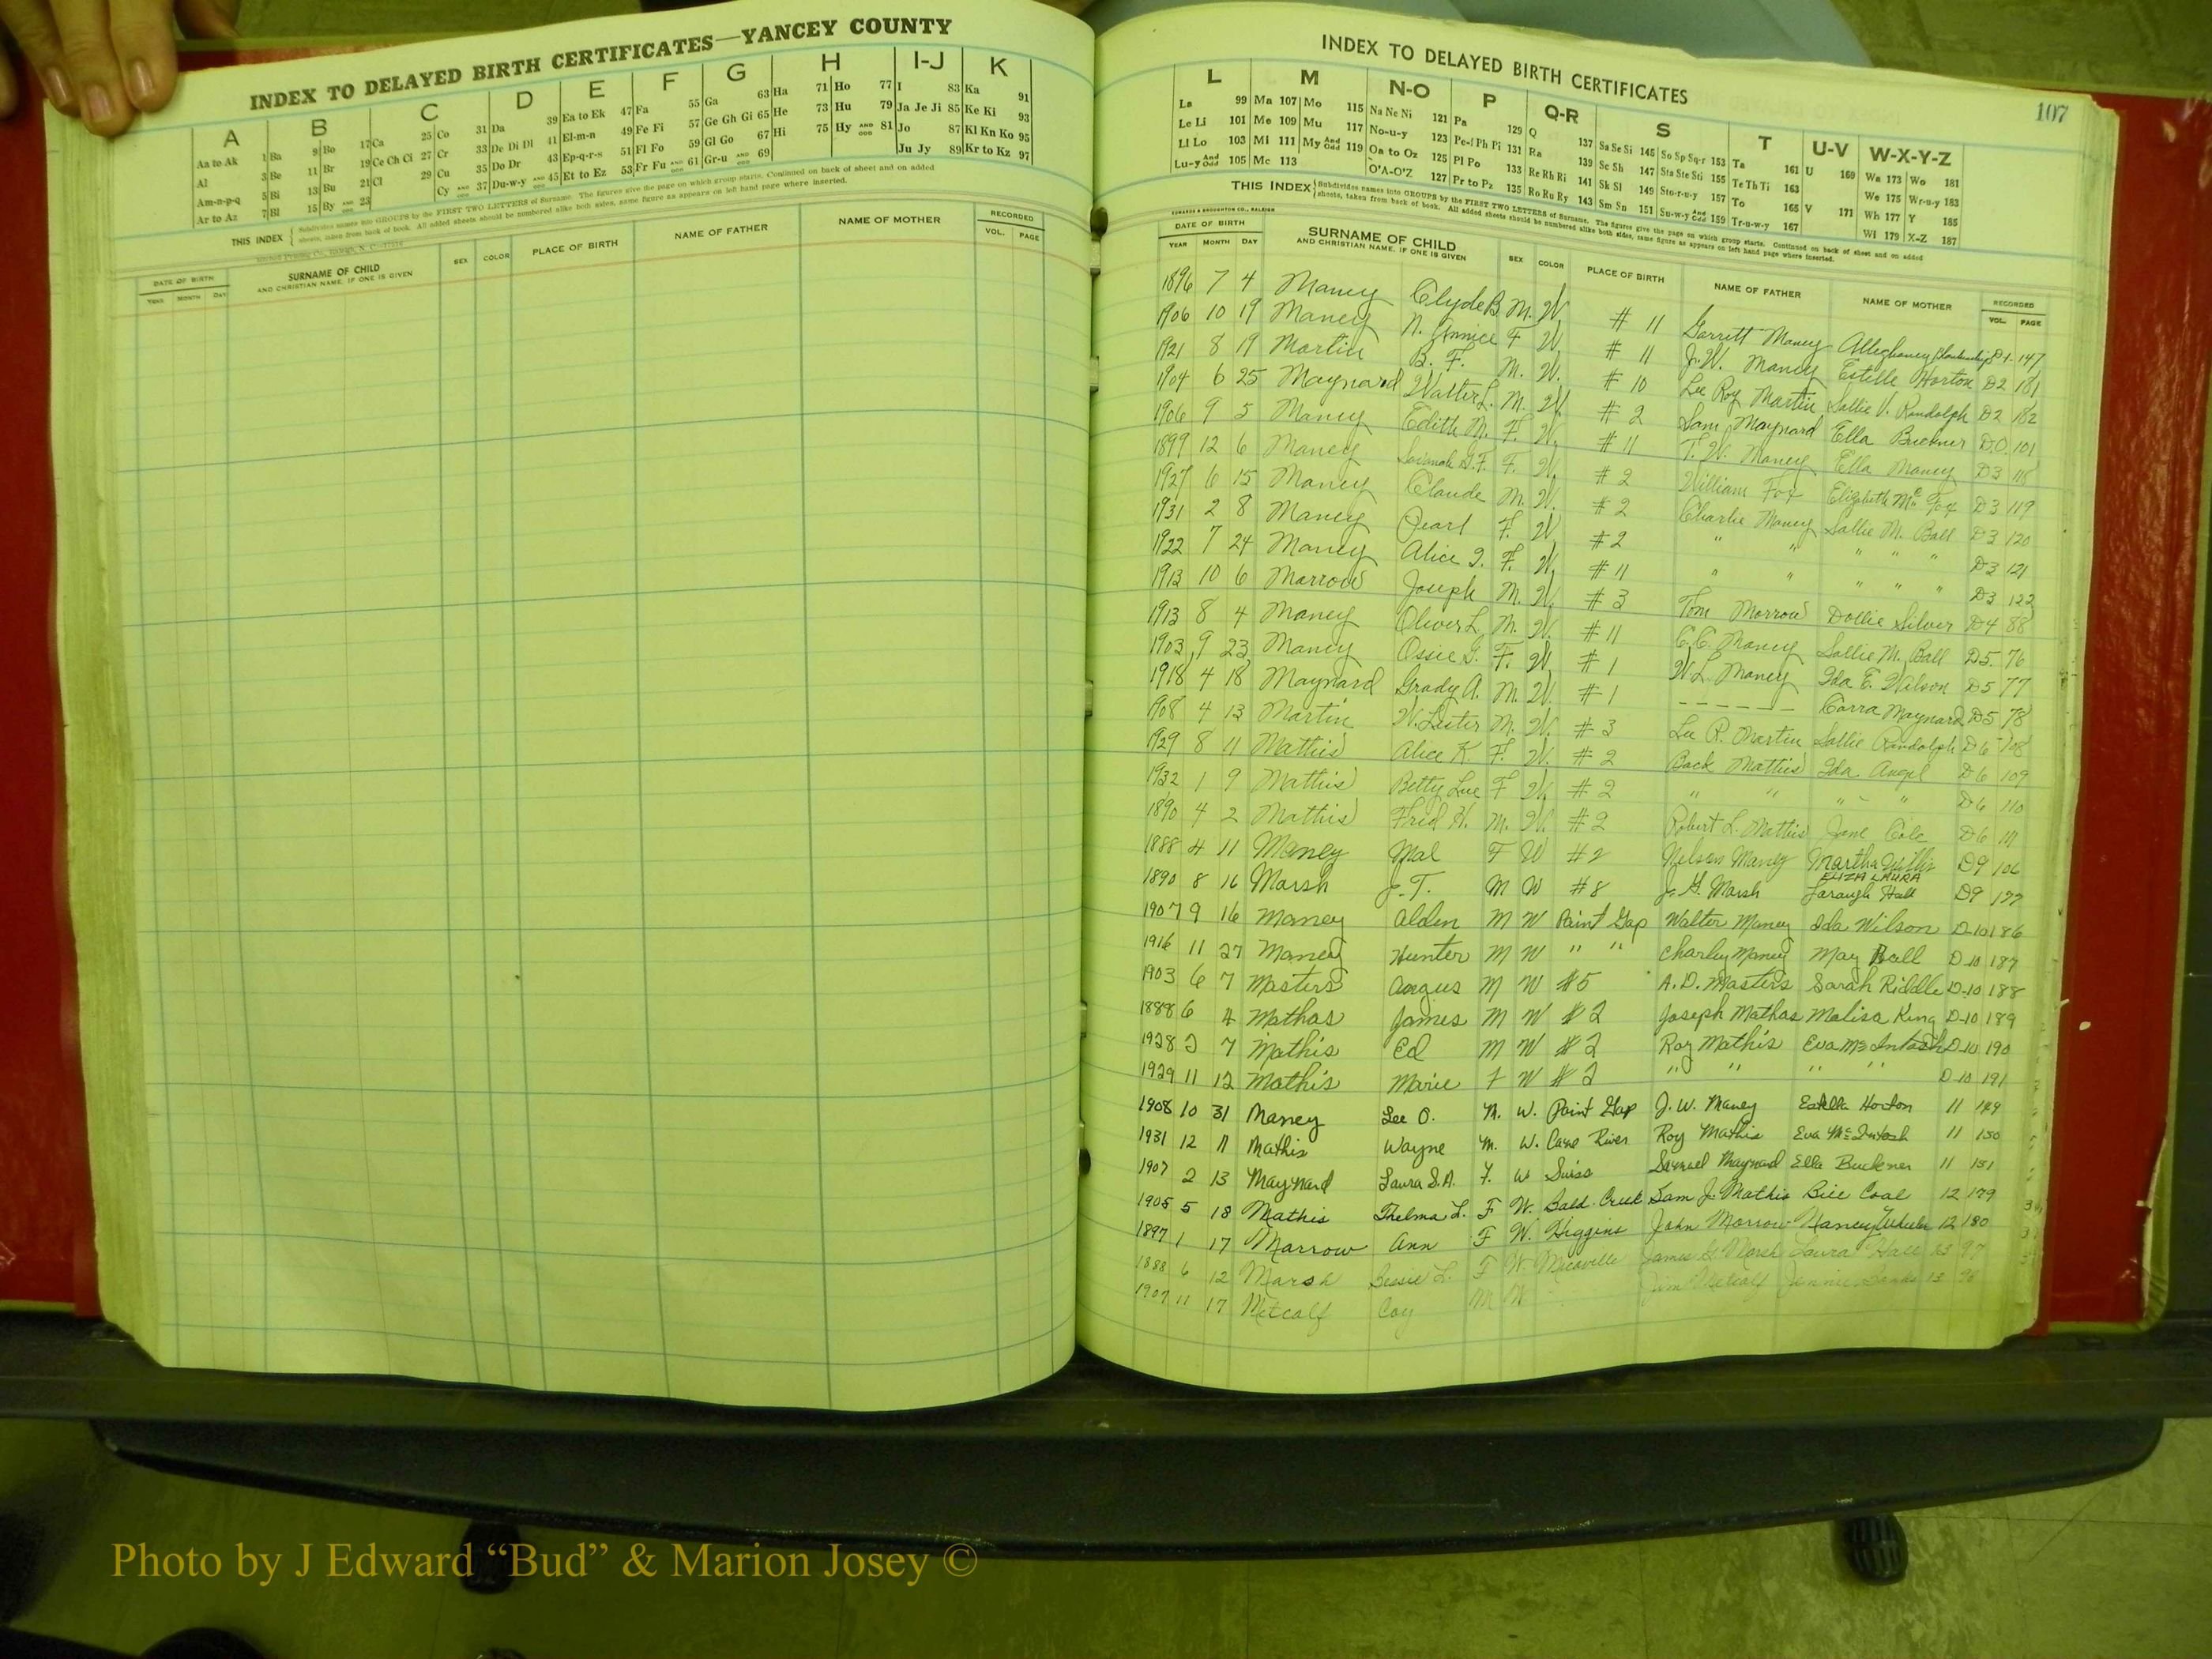 INDEX TO DELAYED BIRTH CERTIFICATES—YANCEY COUNTY
A B C D E F G H I-J K
Aa to Ak 1 Ba 9 Bo 17 Ca 25 Co 31 Da 39 Ea to Ek 47 Fa 55 Ga 63 Ha 71 Ho 77 I 83 Ka 91
Al 3 Be 11 Br 19 Ce Ch Ci 27 Cr 33 De Di Dl 41 El-m-n 49 Fe Fi 57 Ge Gh Gi 65 He 73 Hu 79 Ja Je Ji 85 Ke Ki 93
Am-n-p-q 5 Bi 13 Bu 21 Cl 29 Cu 35 Do Dr 43 Ep-q-r-s 51 Fl Fo 59 Gl Go 67 Hi 75 Hy AND ODD 81 Jo 87 Kl Kn Ko 95
Ar to Az 7 Bl 15 By AND ODD 23 Cy AND ODD 37 Du-w-y AND ODD 45 Et to Ez 53 Fr Fu AND ODD 61 Gr-u AND ODD 69 Ju Jy 89 Kr to Kz 97
THIS INDEX Subdivides names into GROUPS by the FIRST TWO LETTERS of Surname. The figures give the page on which group starts. Continued on back of sheet and on added
sheets, taken from back of book. All added sheets should be numbered alike both sides, same figure as appears on left hand page where inserted.
DATE OF BIRTH SURNAME OF CHILD SEX COLOR PLACE OF BIRTH NAME OF FATHER NAME OF MOTHER RECORDED
YEAR MONTH DAY AND CHRISTIAN NAME, IF ONE IS GIVEN VOL. PAGE
INDEX TO DELAYED BIRTH CERTIFICATES
107
L M N-O P Q-R S T U-V W-X-Y-Z
La 99 Ma 107 Mo 115 Na Ne Ni 121 Pa 129 Q 137 Sa Se Si 145 So Sp Sq-r 153 Ta 161 U 169 Wa 173 Wo 181
Le Li 101 Me 109 Mu 117 No-u-y 123 Pe-f Ph Pi 131 Ra 139 Sc Sh 147 Sta Ste Sti 155 Te Th Ti 163 We 175 Wr-u-y 183
Ll Lo 103 Mi 111 My And Odd 119 Oa to Oz 125 Pl Po 133 Re Rh Ri 141 Sk Sl 149 Sto-r-u-y 157 To 165 V 171 Wh 177 Y 185
Lu-y And Odd 105 Mc 113 O'A-O'Z 127 Pr to Pz 135 Ro Ru Ry 143 Sm Sn 151 Su-w-y And Odd 159 Tr-u-w-y 167 Wi 179 X-Z 187
THIS INDEX Subdivides names into GROUPS by the FIRST TWO LETTERS of Surname. The figures give the page on which group starts. Continued on back of sheet and on added
sheets, taken from back of book. All added sheets should be numbered alike both sides, same figure as appears on left hand page where inserted.
EDWARDS & BROUGHTON CO., RALEIGH
DATE OF BIRTH SURNAME OF CHILD SEX COLOR PLACE OF BIRTH NAME OF FATHER NAME OF MOTHER RECORDED
YEAR MONTH DAY AND CHRISTIAN NAME, IF ONE IS GIVEN VOL. PAGE
1896 7 4 Maney Clyde B M. W. # 11 Garrett Maney Alleghaney D1-147
1906 10 19 Maney N. Annice F W. # 11 J. W. Maney Estelle Horton D2 181
1921 8 19 Martin B. F. M. W. # 10 Lee Roy Martin Sallie V. Randolph D2 182
1904 6 25 Maynard Walter L. M. W. # 2 Sam Maynard Ella Buckner D.O. 101
1906 9 5 Maney Edith M. F. W. # 11 T. W. Maney Ella Maney D3 118
1899 12 6 Maney F. W. # 2 William Fox Elizabeth Mc Fox D3 119
1927 6 15 Maney Claude M. W. # 2 Charlie Maney Sallie M. Ball D3 120
1931 2 8 Maney Pearl F. W. # 2 " " " " " D3 121
1922 7 24 Maney Alice I. F. W. # 11 " " " " " D3 122
1913 10 6 Marrow Joseph M. W. # 3 Tom Morrow Dollie Silver D4 88
1913 8 4 Maney Oliver L. M. W. # 11 C. C. Maney Sallie M. Ball D5. 76
1903 9 23 Maney Ossie G. F. W. # 1 W. L. Maney Ida E. Wilson D5 77
1918 4 18 Maynard Grady A. M. W. # 1 – – – – – – Carra Maynard D5 78
1908 4 13 Martin W. Lester M. W. # 3 Lee R. Martin Sallie Randolph D6 108
1929 8 11 Mathis Alice K. F. W. # 2 Back Mathis Ida Angel D6 109
1932 1 9 Mathis Betty Lue F W. # 2 " " " " D6 110
1890 4 2 Mathis Fred H. M. W. # 2 Robert L. Mathis Jane Cole D6 111
1888 4 11 Maney Mal F W #2 Nelson Maney Martha Willis D9 106
1890 8 16 Marsh J. T. M W #8 J. G. Marsh ELIZA LAURA Hall D9 177
1907 9 16 Maney Alden M W Paint Gap Walter Maney Ida Wilson D-10 186
1916 11 27 Maney Hunter M W " " Charley Maney May Ball D-10 187
1903 6 7 Masters Angus M W #5 A. D. Masters Sarah Riddle D-10 188
1888 6 4 Mathas James M W # 2 Joseph Mathas Malisa King D-10 189
1928 2 7 Mathis Ed M W # 2 Roy Mathis Eva McIntosh D-10 190
1929 11 12 Mathis Marie F W # 2 " " " " D-10 191
1908 10 31 Maney Lee O. M. W. Paint Gap J. W. Maney Estella Horton 11 149
1931 12 11 Mathis Wayne M. W. Cane River Roy Mathis Eva McIntosh 11 150
1907 2 13 Maynard Laura S.A. F. W Swiss Samuel Maynard Ella Buckner 11 151
1905 5 18 Mathis Thelma L. F W. Bald Creek Sam J. Mathis Bice Coal 12 179
1897 1 17 Marrow Ann F W. Higgins John Morrow Nancy Wheeler 12 180
1888 6 12 Marsh Bessie L. F W Micaville James G. Marsh Laura Hall 13 97
1907 11 17 Metcalf Coy M W Jim Metcalf Jennie Banks 13 98
Photo by J Edward “Bud” & Marion Josey ©